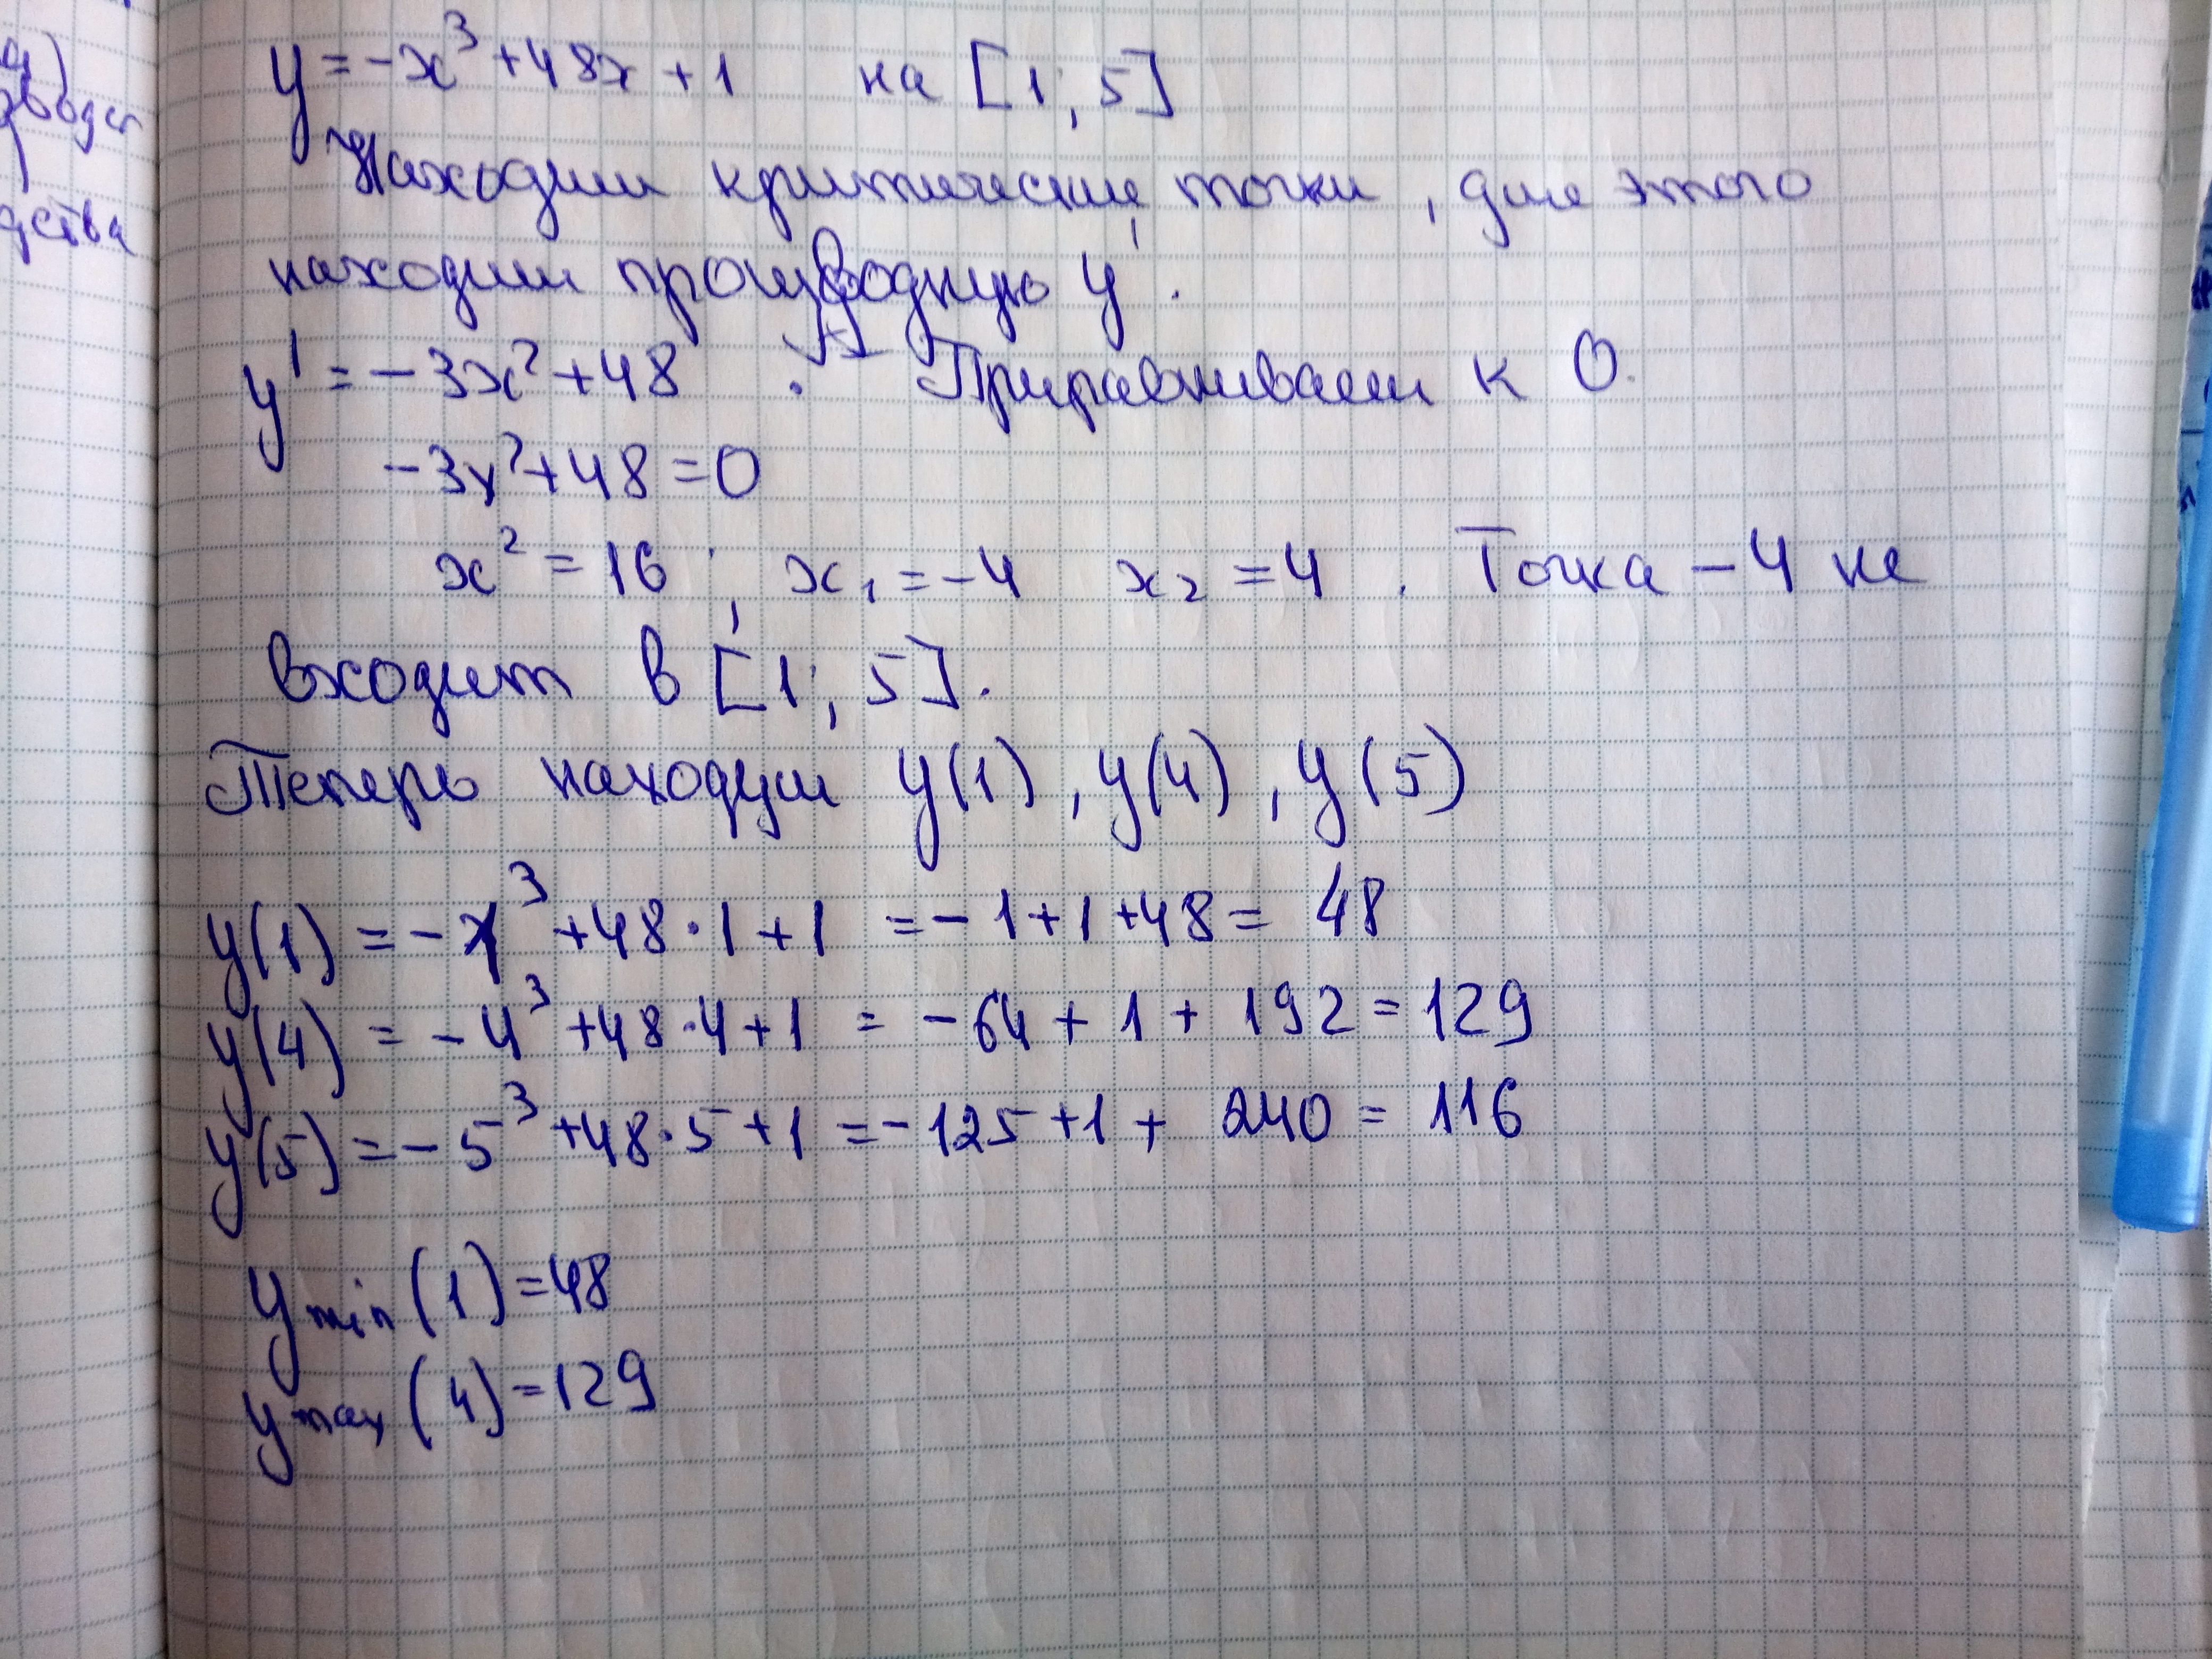 y = -x³ + 48x + 1 на [1; 5]
Находим критические точки, для этого
находим производную y'.
y' = -3x² + 48. Приравниваем к 0.
-3x² + 48 = 0
x² = 16; x₁ = -4 x₂ = 4. Точка -4 не
входит в [1; 5].
Теперь находим y(1), y(4), y(5)
y(1) = -1³ + 48·1 + 1 = -1 + 1 + 48 = 48
y(4) = -4³ + 48·4 + 1 = -64 + 1 + 192 = 129
y(5) = -5³ + 48·5 + 1 = -125 + 1 + 240 = 116
y min (1) = 48
y max (4) = 129
дства